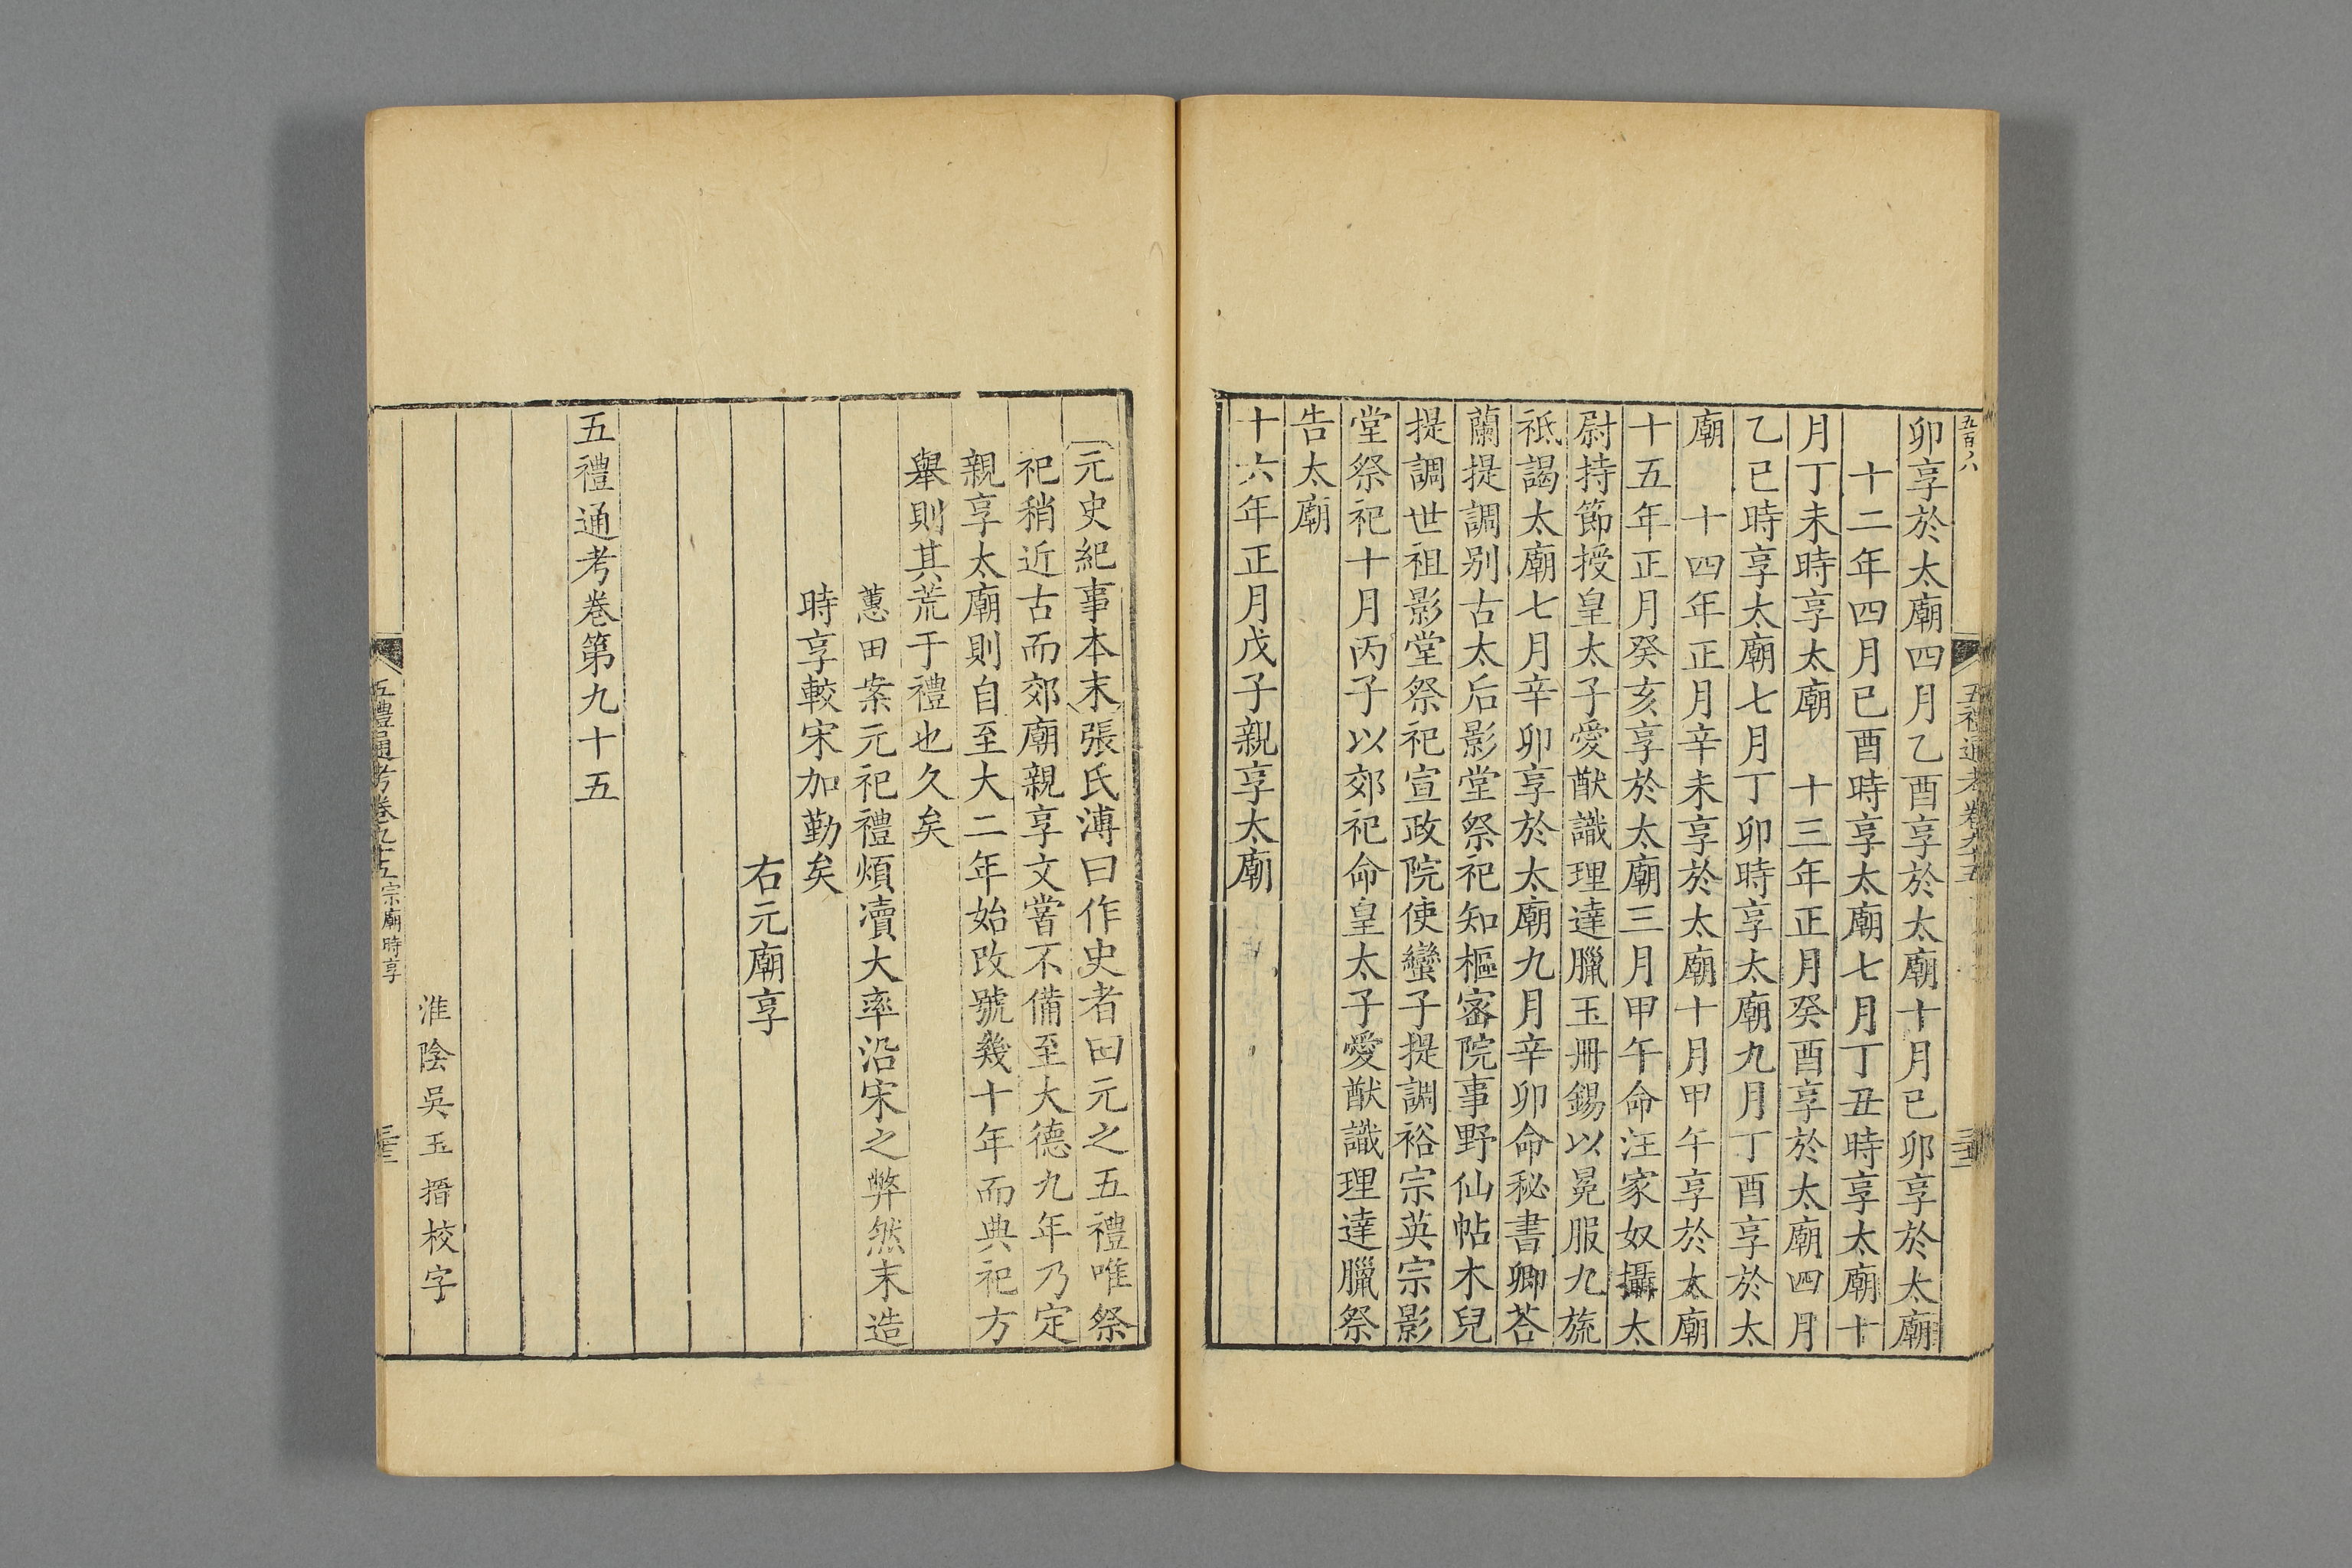 五百八
五禮通考卷九十五
卯享於太廟四月乙酉享於太廟十月已卯享於太廟
十二年四月已酉時享太廟七月丁丑時享太廟十
月丁未時享太廟 十三年正月癸酉享於太廟四月
乙巳時享太廟七月丁卯時享太廟九月丁酉享於太
廟 十四年正月辛未享於太廟十月甲午享於太廟
十五年正月癸亥享於太廟三月甲午命汪家奴攝太
尉持節授皇太子愛猷識理達臘玉冊錫以冕服九旒
祇謁太廟七月辛卯享於太廟九月辛卯命秘書卿荅
蘭提調别古太后影堂祭祀知樞宻院事野仙帖木兒
提調世祖影堂祭祀宣政院使蠻子提調裕宗英宗影
堂祭祀十月丙子以郊祀命皇太子愛猷識理達臘祭
告太廟
十六年正月戊子親享太廟
元史紀事本末張氏溥曰作史者曰元之五禮唯祭
祀稍近古而郊廟親享文嘗不備至大德九年乃定
親享太廟則自至大二年始改號幾十年而典祀方
舉則其荒于禮也久矣
蕙田案元祀禮煩瀆大率沿宋之弊然末造
時享較宋加勤矣
右元廟享
五禮通考卷第九十五
淮陰吳玉搢校字
五禮通考卷九十五 宗廟時享